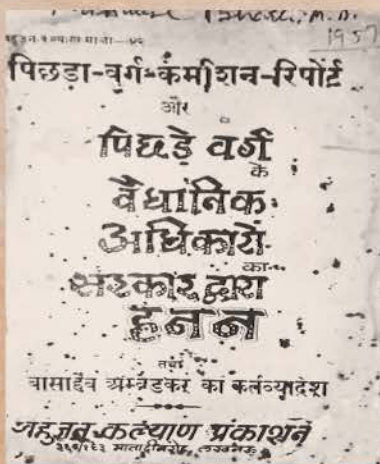 1957
पिछड़ा-वर्ग-कमीशन-रिपोर्ट
और
पिछड़े वर्ग
के
वैधानिक
अधिकारों
का
सरकार द्वारा
हनन
तथा
बाबासाहेब अम्बेडकर का कर्तव्यादेश
बहुजन कल्याण प्रकाशन
लखनऊ